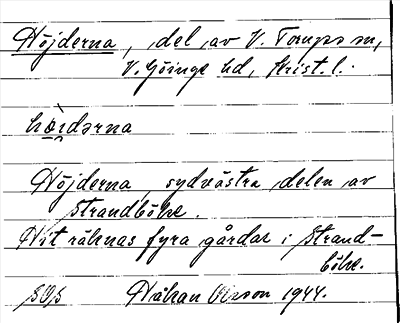 Höjderna, del av V. Torups sn,
V. Göinge hd, Krist. l.
höıdərna
Höjderna, sydvästra delen av
Strandböke.
Hit räknas fyra gårdar i Strand-
böke.
Håkan Olsson 1944.